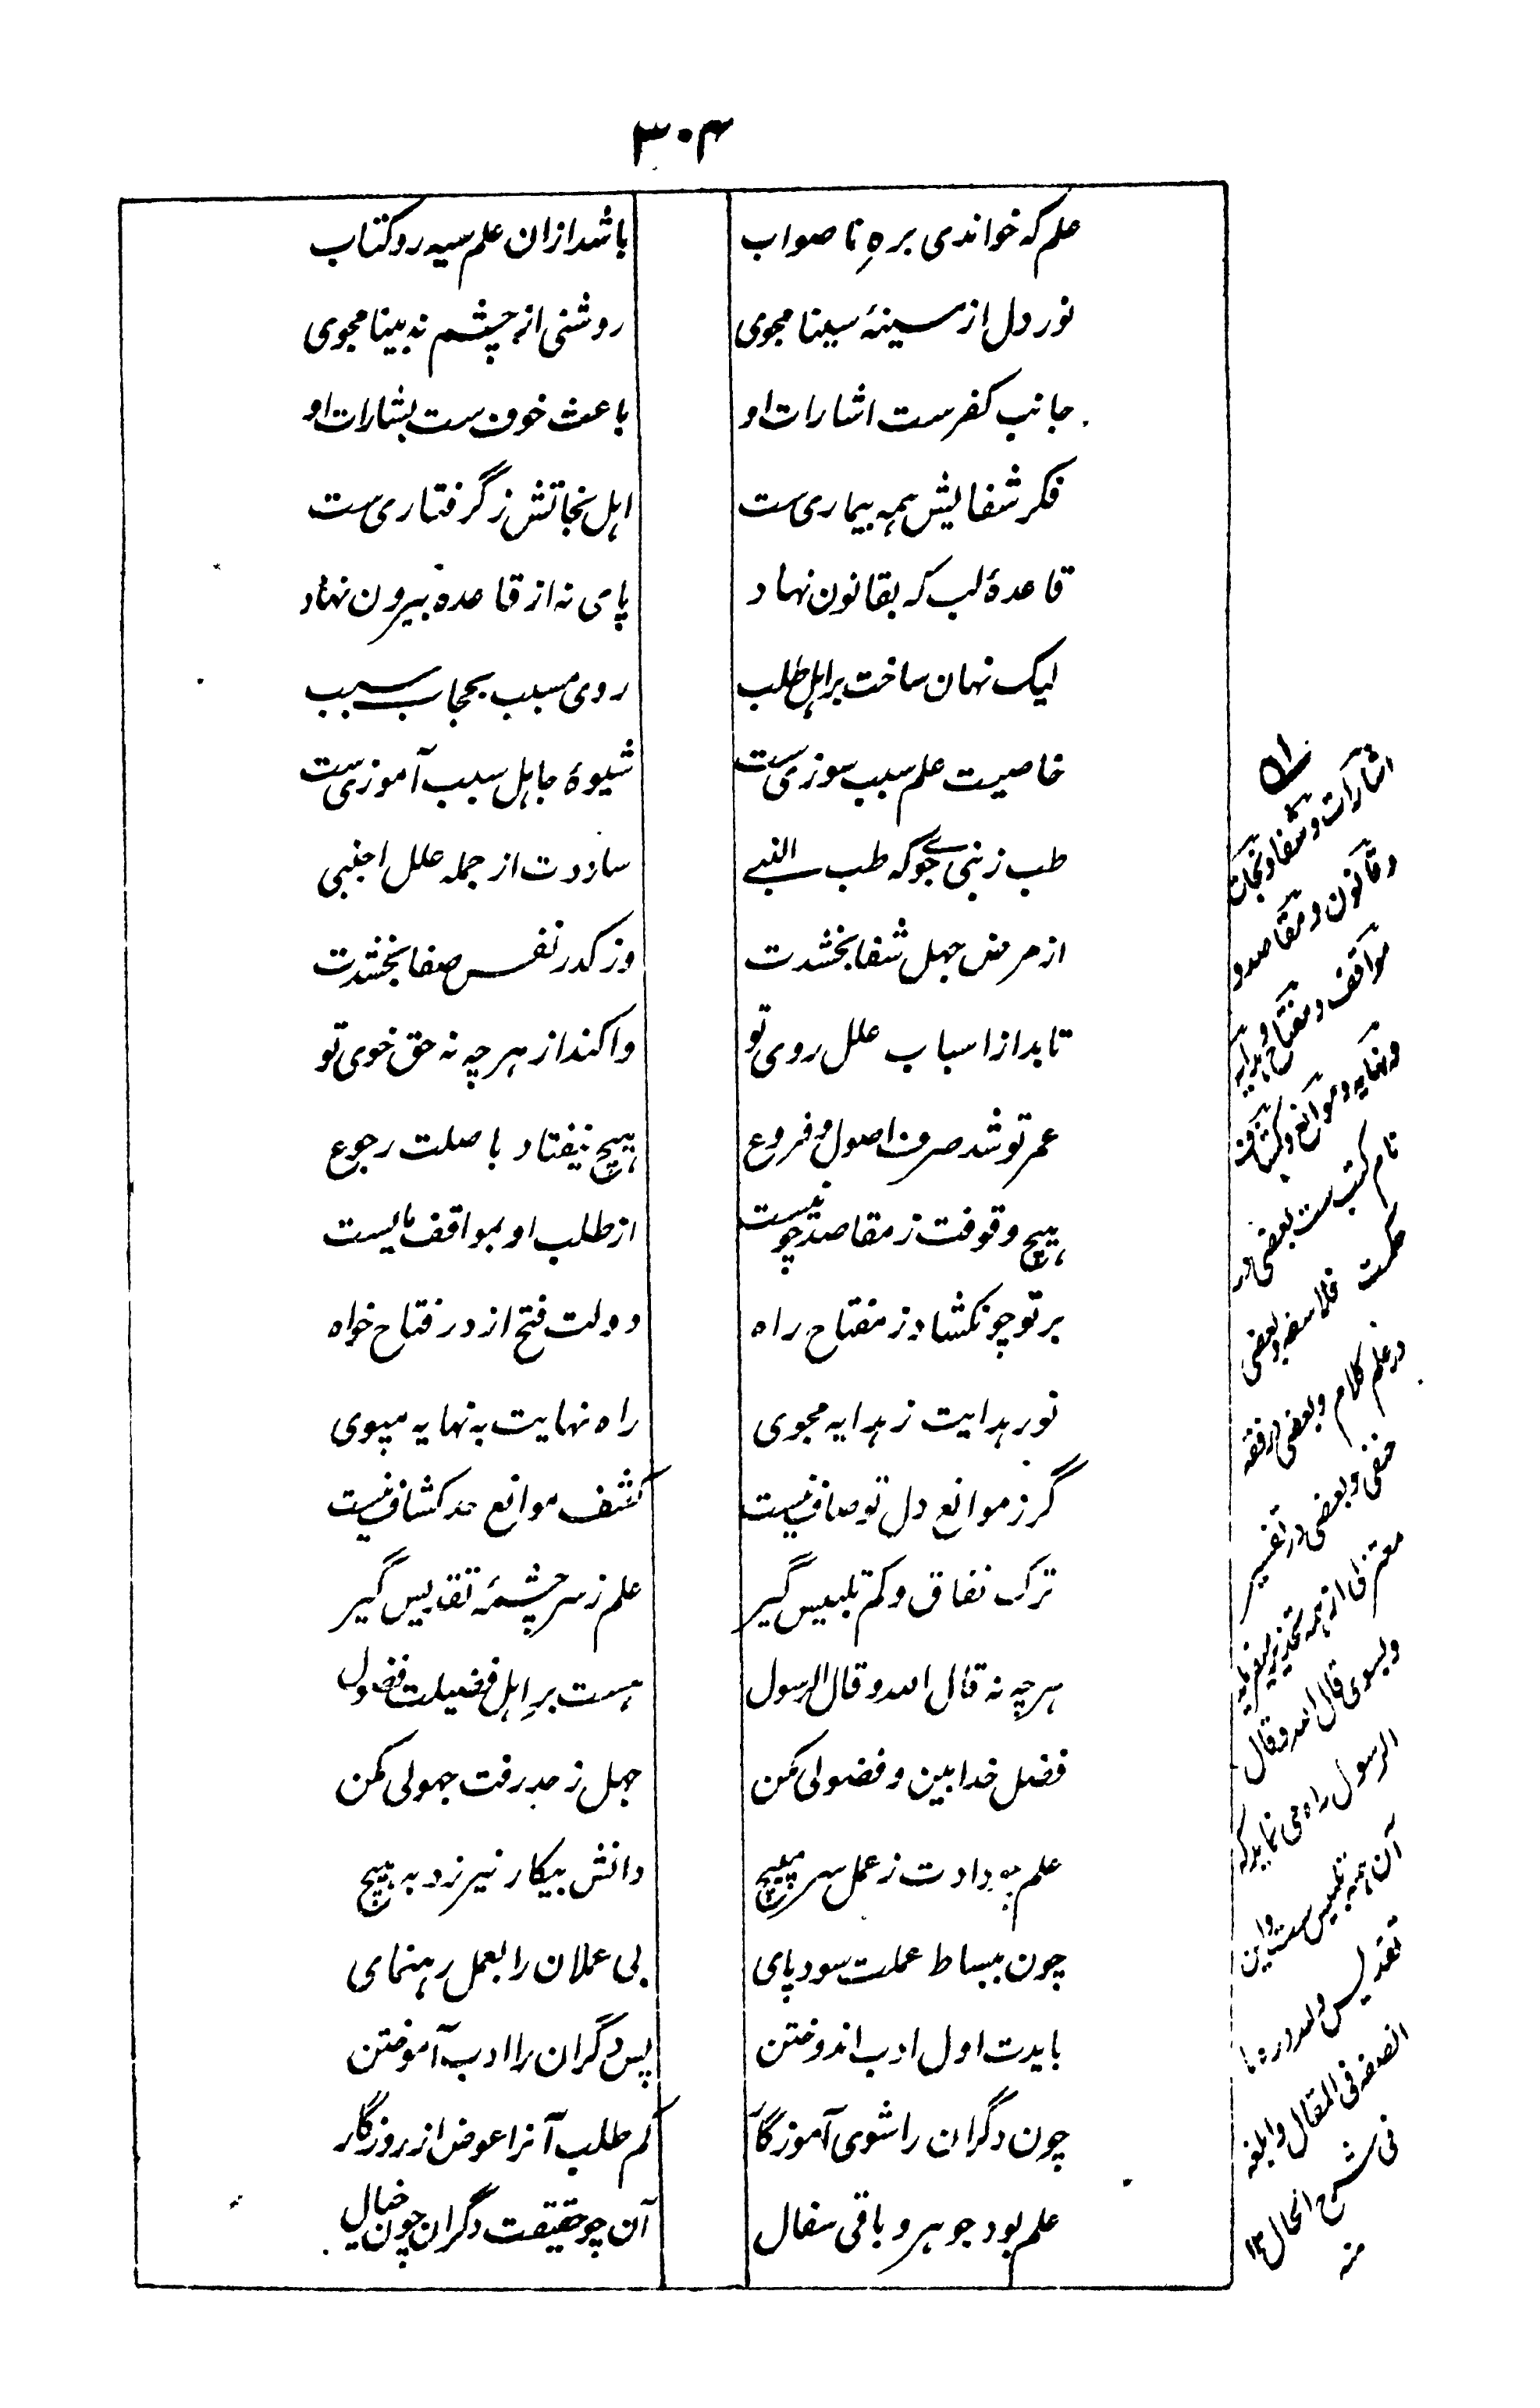 ۳۰۴
علم که خواندی برهِ نا صواب باشد ازان علم سیه رو کتاب
نور دل از سینهٔ سینا مجوی روشنی از چشم نه بینا مجوی
جانب کفرست اشارات او باعث خوف ست بشارات او
فکر شفایش همه بیماری ست اهل نجاتش ز گرفتاری ست
قاعدهٔ لب که بقانون نهاد پای نه از قاعده بیرون نهاد
لیک نهان ساخت بر اهل طلب روی مسبب بحجاب سبب
خاصیت علم سبب سوزی ست شیوهٔ جاهل سبب آموزی ست
طب ز نبی جو که طب النبی سازدت از جمله علل اجنبی
از مرض جهل شفا بخشدت وز کدر نفس صفا بخشدت
تابد از اسباب علل روی تو واکند از هر چه نه حق خوی تو
عمر تو شد صرف اصول و فروع هیچ نیفتاد باصلت رجوع
هیچ وقوفت ز مقاصد چو نیست از طلب او بمواقف مایست
بر تو چو نکشاد ز مفتاح راه دولت فتح از در فتاح خواه
نور هدایت ز هدایه مجوی راه نهایت به نهایه مپوی
گر ز موانع دل تو صاف نیست کشف موانع حد کشاف نیست
ترک نفاق و کم تلبیس گیر علم ز سرچشمهٔ تقدیس گیر
هر چه نه قال الله و قال الرسول هست برِ اهل فضیلت فضول
فضل خدا بین و فضولی مکن جهل ز حد رفت جهولی مکن
علم چو دادت ز عمل سر مپیچ دانش بیکار نیرزد به هیچ
چون ببساط عملت سود پای بی عملان را بعمل رهنمای
بایدت اول ادب اندوختن پس دگران را ادب آموختن
چون دگران را شوی آموزگار کم طلب آنرا عوض از روزگار
علم بود جوهر و باقی سفال آن چو حقیقت دگران چون خیال
اشارات و شفا و نجات
و قانون و مقاصد و
مواقف و مفتاح و هدایه
و نهایه و موانع و کشاف
نام کتب ست بعضی در
حکمت فلاسفه و بعضی
در علم کلام و بعضی در فقه
حنفی و بعضی در تفسیر
معتزلی از همه تحذیر میفرماید
و بسوی قال الله و قال
الرسول راه می نماید که
آن همه تلبیس ست و این
تقدیس و لله دره ما
انصفه فی المقال و ابلغه
فی شرح الحال ۱۲
منه